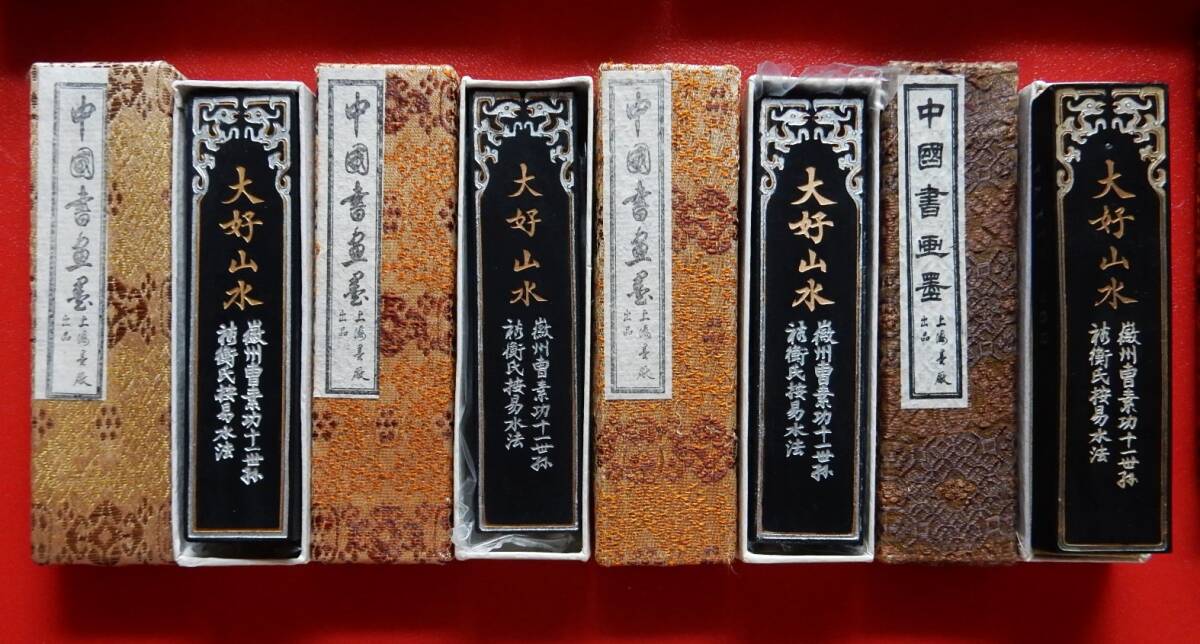 中國書畫墨
上海墨厰
出品
大好山水
徽州曹素功十一世孙
裕衡氏按易水法
中國書畫墨
上海墨厰
出品
大好山水
徽州曹素功十一世孙
裕衡氏按易水法
中國書畫墨
上海墨厰
出品
大好山水
徽州曹素功十一世孙
裕衡氏按易水法
中國書画墨
上海墨厰
出品
大好山水
徽州曹素功十一世孙
裕衡氏按易水法